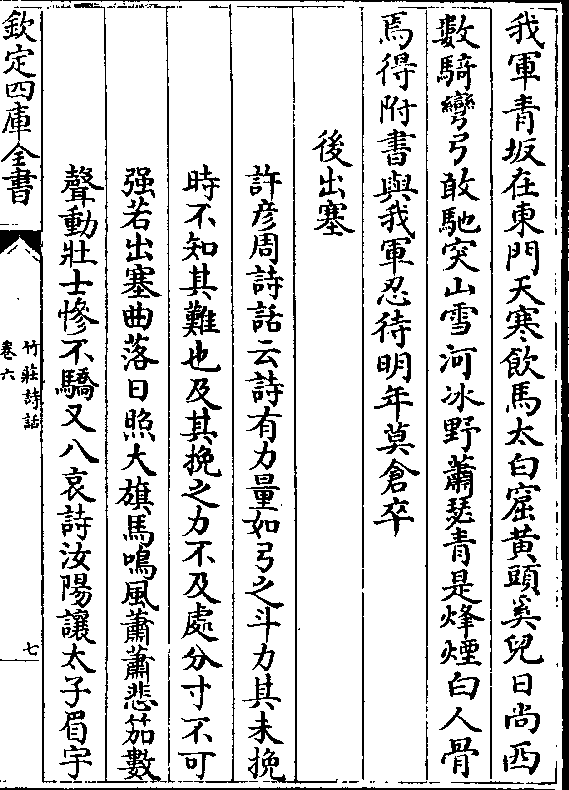 我軍青坂在東門天寒飲馬太白窟黃頭奚兒日尚西
數騎彎弓敢馳突山雪河冰野蕭瑟青是烽煙白人骨
焉得附書與我軍忍待明年莫倉卒
後出塞
許彥周詩話云詩有力量如弓之斗力其未挽
時不知其難也及其挽之力不及處分寸不可
强若出塞曲落日照大旗馬鳴風蕭蕭悲笳數
聲動壯士慘不驕又八哀詩汝陽讓太子眉宇
欽定四庫全書
竹莊詩話
卷六
七